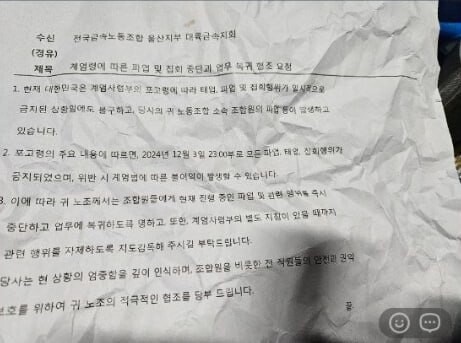 수신 전국금속노동조합 울산지부 대륙금속지회
(경유)
제목 계엄령에 따른 파업 및 집회 중단과 업무 복귀 협조 요청
1. 현재 대한민국은 계엄사령부의 포고령에 따라 태업, 파업 및 집회행위가
금지된 상황임에도 불구하고, 당사의 귀 노동조합 소속 조합원의 파업 등이 발생하고
있습니다.
2. 포고령의 주요 내용에 따르면, 2024년 12월 3일 23:00부로 모든 파업, 태업, 집회행위가
금지되었으며, 위반 시 계엄법에 따른 불이익이 발생할 수 있습니다.
3. 이에 따라 귀 노조에서는 조합원들에게 현재 진행 중인 파업 및 관련 행위를 즉시
중단하고 업무에 복귀하도록 명하고, 또한, 계엄사령부의 별도 지침이 있을 때까지
관련 행위를 자제하도록 지도감독해 주시길 부탁드립니다.
당사는 현 상황의 엄중함을 깊이 인식하며, 조합원을 비롯한 전 직원들의 안전과 권익
보호를 위하여 귀 노조의 적극적인 협조를 당부 드립니다.
끝